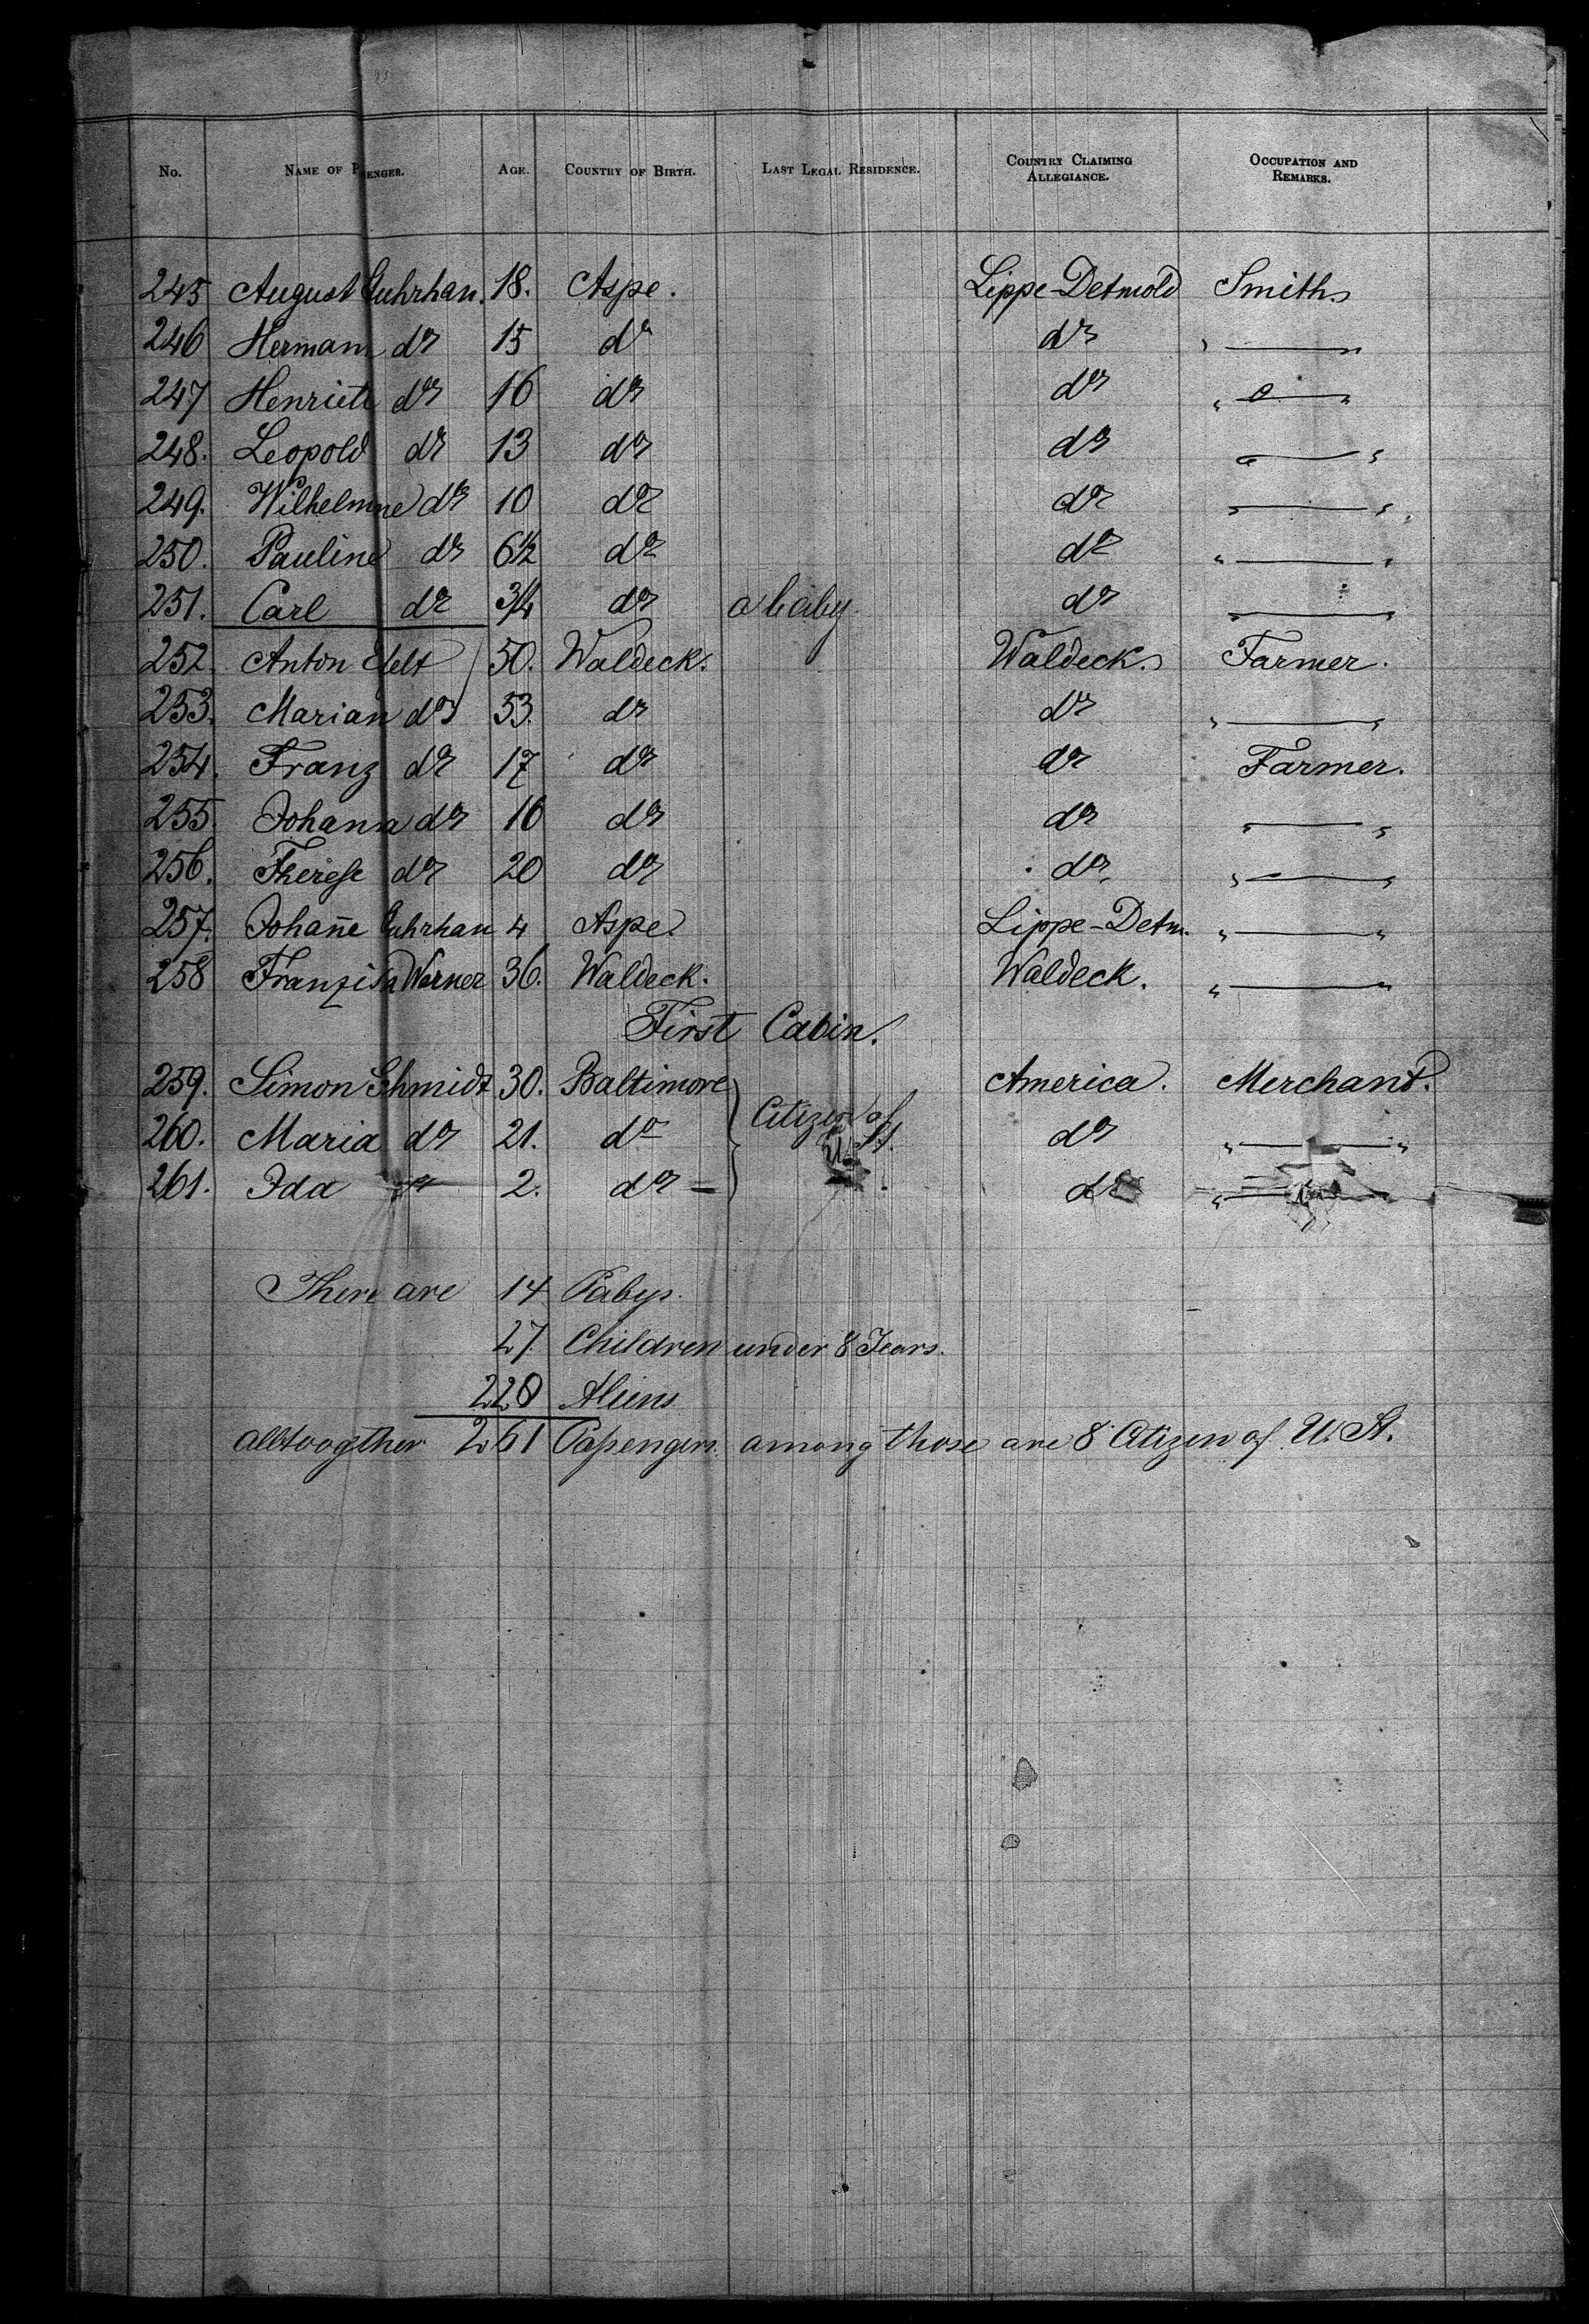 No. NAME OF P ENGER. AGE. COUNTRY OF BIRTH. LAST LEGAL RESIDENCE. COUNTRY CLAIMING ALLEGIANCE. OCCUPATION AND REMARKS.
245 August Guhrhan. 18. Aspe. Lippe-Detmold Smith
246 Hermann do 15 do do "
247 Henriete do 16 do do " "
248. Leopold do 13 do do "
249. Wilhelmne do 10 do do " "
250. Pauline do 6½ do do " "
251. Carl do 3/4 do a baby do "
252. Anton 50. Waldeck. Waldeck. Farmer.
253. Marian do 53. do do " "
254. Franz do 17 do do Farmer.
255. Johanna do 16 do do " "
256. Therese do 20 do do. " "
257. Johañe Guhrhan 4 Aspe. Lippe-Detm. " "
258 Franziska Werner 36. Waldeck. Waldeck. " "
First Cabin.
259. Simon Schmidt 30. Baltimore America. Merchant.
260. Maria do 21. do Citizen of do " "
261. Ida do 2. do do "
There are 14 Babys.
27 Children under 8 Years.
220 Aliens
alltoogther 261 Passengers. among those are 8 Citizen of U. St.